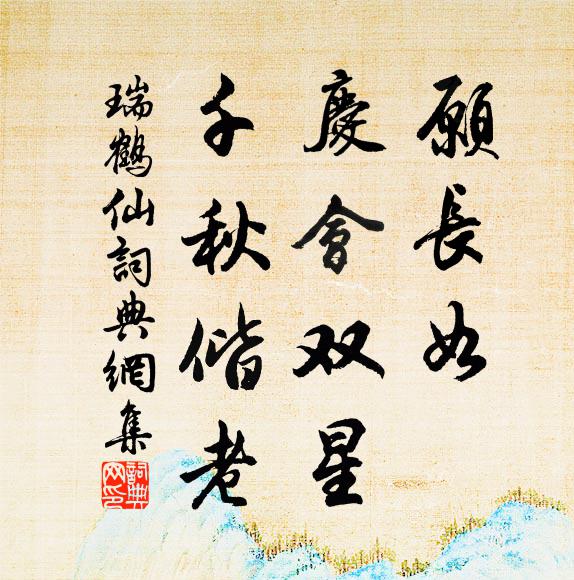 願長如
慶會双星
千秋偕老
瑞鶴仙詞典網集
詞典网印